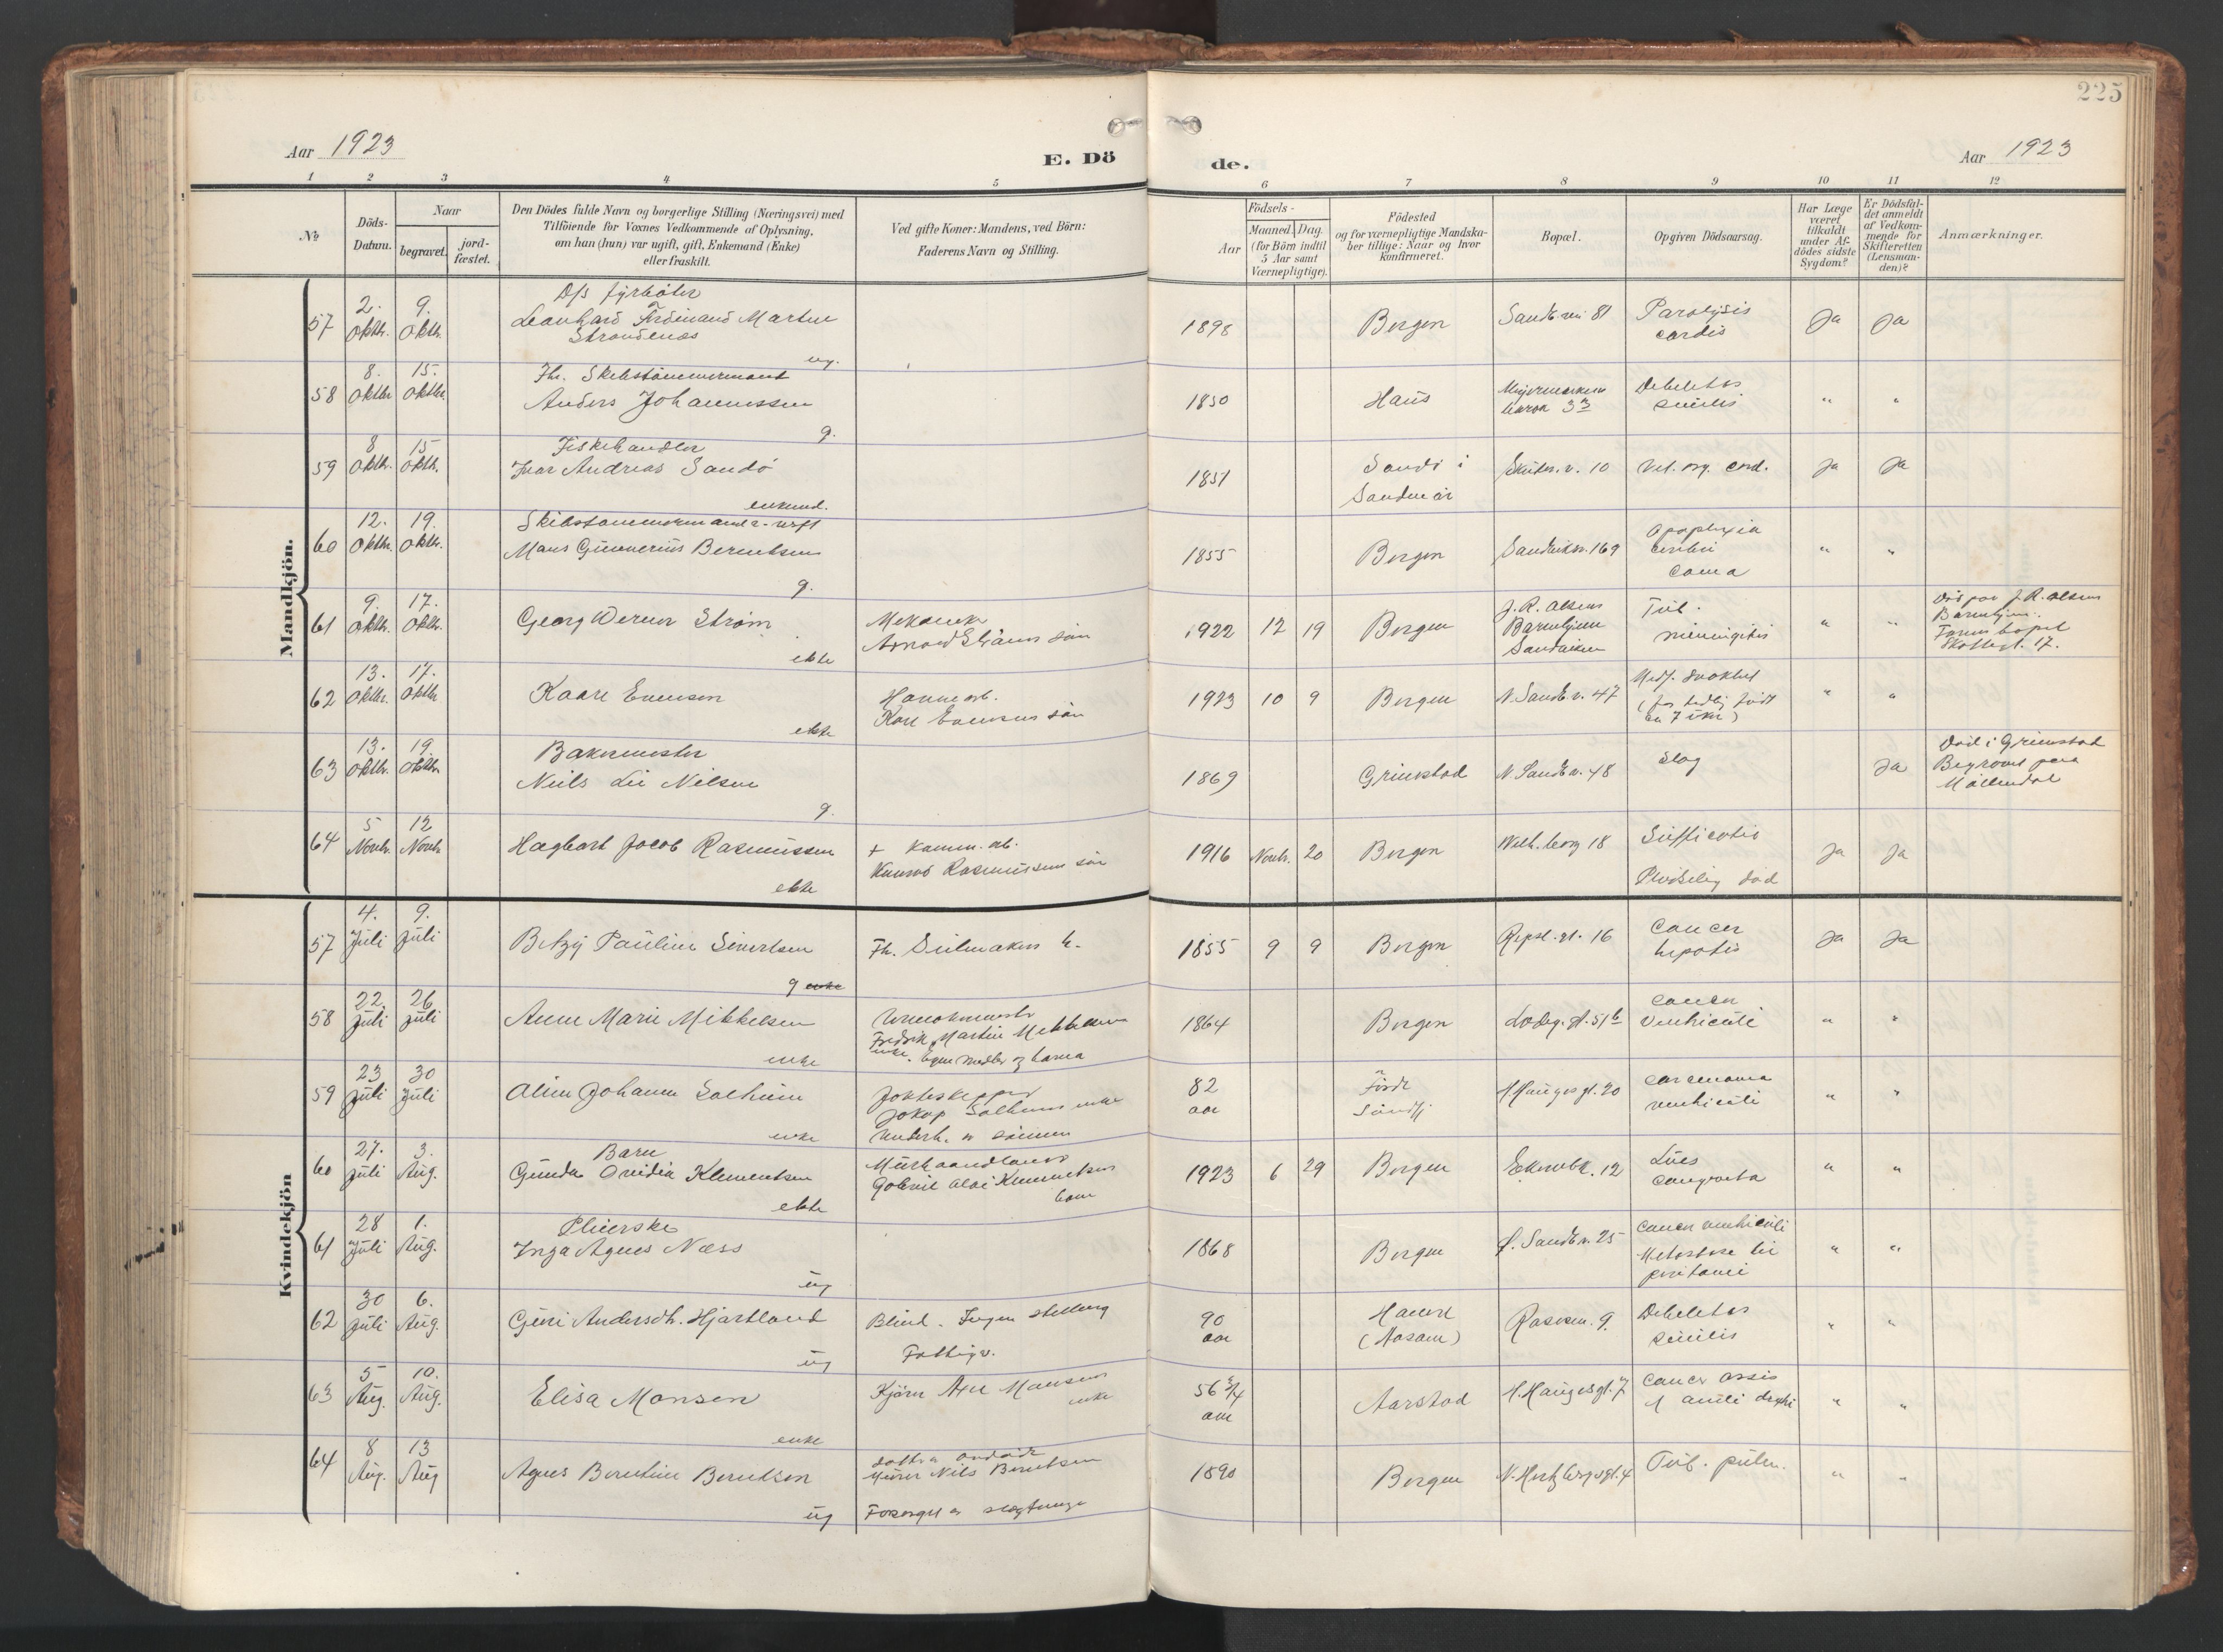 225
Aar 1923
E. Dö
de.
Aar 1923
1 2 3 4 5 6 7 8 9 10 11 12
№
Döds-
Datum.
Naar
begravet.
jord-
fæstet.
Den Dödes fulde Navn og borgerlige Stilling (Næringsvei) med
Tilföiende for Voxnes Vedkommende af Oplysning,
om han (hun) var ugift, gift, Enkemand (Enke)
eller fraskilt.
Ved gifte Koner: Mandens, ved Börn:
Faderens Navn og Stilling.
Födsels-
Aar
Maaned. Dag.
(for Börn indtil
5 Aar samt
Værnepligtige).
Födested
og for værnepligtige Mandska-
ber tillige: Naar og hvor
Konfirmeret.
Bopæl.
Opgiven Dödsaarsag.
Har Læge
været
tilkaldt
under Af-
dödes sidste
Sygdom?
Er Dödsfal-
det anmeldt
af Vedkom-
mende for
Skifteretten
(Lensman-
den)?
Anmærkninger.
Mandkjön.
57 2. Oktbr. 9. Oktbr.
D/s fyrböter
Leonhard Ferdinand Martin
Strandenæs
ug.
1898 Bergen Sandv.vei 81 Paralysis
cordis Ja Ja
58 8. Oktbr. 15. Oktbr.
Fhv. Skibstömmermand
Anders Johannessen
g.
1850 Haus
Debilitas
senilis " "
59 8 Oktbr. 15 Oktbr.
Fiskehandler
Ivar Andreas Sandö
enkemd.
1851 Sandö i
Söndmör Skuten.v. 10 Vit. org. cord. Ja Ja
60 12. Oktbr. 19. Oktbr.
Skibstömmermand
Mons Gunnerius Berentsen
g.
1855 Bergen Sandviksv. 169 Apoplexia
cerebri
Coma " "
61 9. Oktbr. 17. Oktbr.
Georg Werner Ström
ekte
Mekaniker
Arnold Ströms sön
1922 12 19 Bergen J. R. Olsens
Barnehjem
Sandviken Tub.
meningitis " "
Död paa J. R. Olsens
Barnehjem.
62 13. Oktbr. 17. Oktbr.
Kaare Evensen
ekte
Havnearb.
Kare Evensens sön
1923 10 9 Bergen N. Sandv.v. 47 Medf. svakhet
63 13. Oktbr. 19. Oktbr.
Bakermester
Niels Lii Nilsen
g.
1869 Grimstad N. Sandv.v. 48 Slag Ja
Död i Grimstad
Begravet paa
Möllendal
64 5 Novbr. 12 Novbr.
Hagbart Jacob Rasmussen
ekte
+ Komm. arb.
Konrad Rasmussens sön
1916 Novbr. 20 Bergen Wilh. berg 18 Suffocatio
Pludselig död Ja Ja
Kvindekjön
57 4. Juli 9. Juli
Betzy Pauline Sivertsen
g enke
Fh. Seilmaker h.
1855 9 9 Bergen Repsl.gt. 16 Cancer
hepatis Ja Ja
58 22. Juli 26 Juli
Anne Marie Mikkelsen
enke
Fredrik Martin Mikkelsens
enke. Egne midler og barna
1864 Bergen Ladeg.gt. 51b Cancer
ventriculi " "
59 23 Juli 30 Juli
Aline Johanne Solheim
enke
Jakteskipper
Jakop Solheims enke
Underh. av sönnen
82
aar
Förde
Söndfj. H. Haugesgt. 20 Carcinoma
ventriculi " "
60 27. Juli 3. Aug.
Barn
Gunda Ovidia Klementsen
ekte
Murhaandlanger
Gabriel Olai Klementsens
barn
1923 6 29 Bergen 12 Lues
congenita " "
61 28 Juli 1. Aug.
Pleierske
Inga Agnes Næss
ug
1868 Bergen S. Sandv.v. 25 Cancer ventriculi
Metastase til
peritonei " "
62 30 Juli 6. Aug.
Guri Andersdt. Hjartland
ug
Blind. Ingen stilling
Fattigv.
90
aar
Hamre
(Aasane) 9. Debilitas
senilis " "
63 5 Aug. 10. Aug.
Elisa Monsen
enke
Monsens
enke
56 3/4
aar
Aarstad H. Haugesgt. 7 Cancer ossis
" "
64 8 Aug. 13 Aug
Agnes Berntine Berntsen
ug
Murer Nils Berntsen
1890 Bergen N. Hertzbergsgt. 4 Tub. pulm. " "